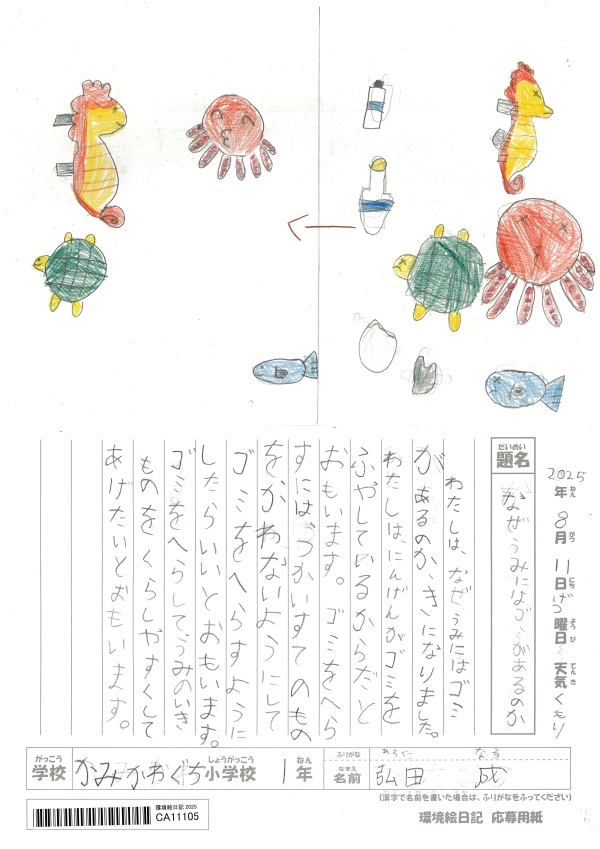 2025年ねん8月がつ11日にちげつ曜日ようび天気てんきくもり
だいめい
題名
なぜうみにはゴミがあるのか
わたしは、なぜ、うみにはゴミ
があるのか、きになりました。
わたしは、にんげんがゴミを
ふやしているからだと
おもいます。ゴミをへら
すには、つかいすてのもの
をかわないようにして
ゴミをへらすように
したらいいとおもいます。
ゴミをへらしてうみのいき
ものをくらしやすくして
あげたいとおもいます。
がっこう しょうがっこう ねん
学校 かみかわぐち小学校 1年
ふりがな ひろた なる
なまえ
名前 弘田 成
(漢字で名前を書いた場合は、ふりがなをふってください)
環境絵日記 2025
CA11105
環境絵日記 応募用紙